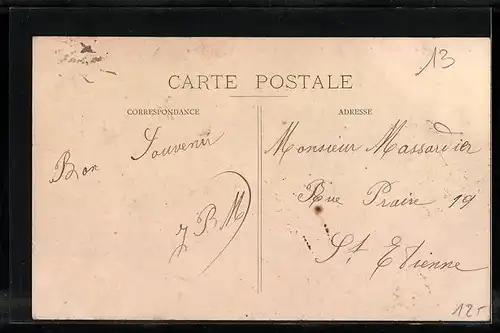 13
CARTE POSTALE
CORRESPONDANCE
ADRESSE
Bon Souvenir
J B M
Monsieur Massardier
Rue Praire 19
St Etienne
12